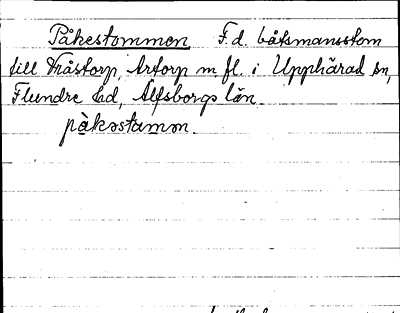 Påkestommen F.d. båtsmansstom
till Tråstorp, Artorp m fl. i Upphärad sn,
Flundre hd, Älfsborgs län.
påkəstumən.